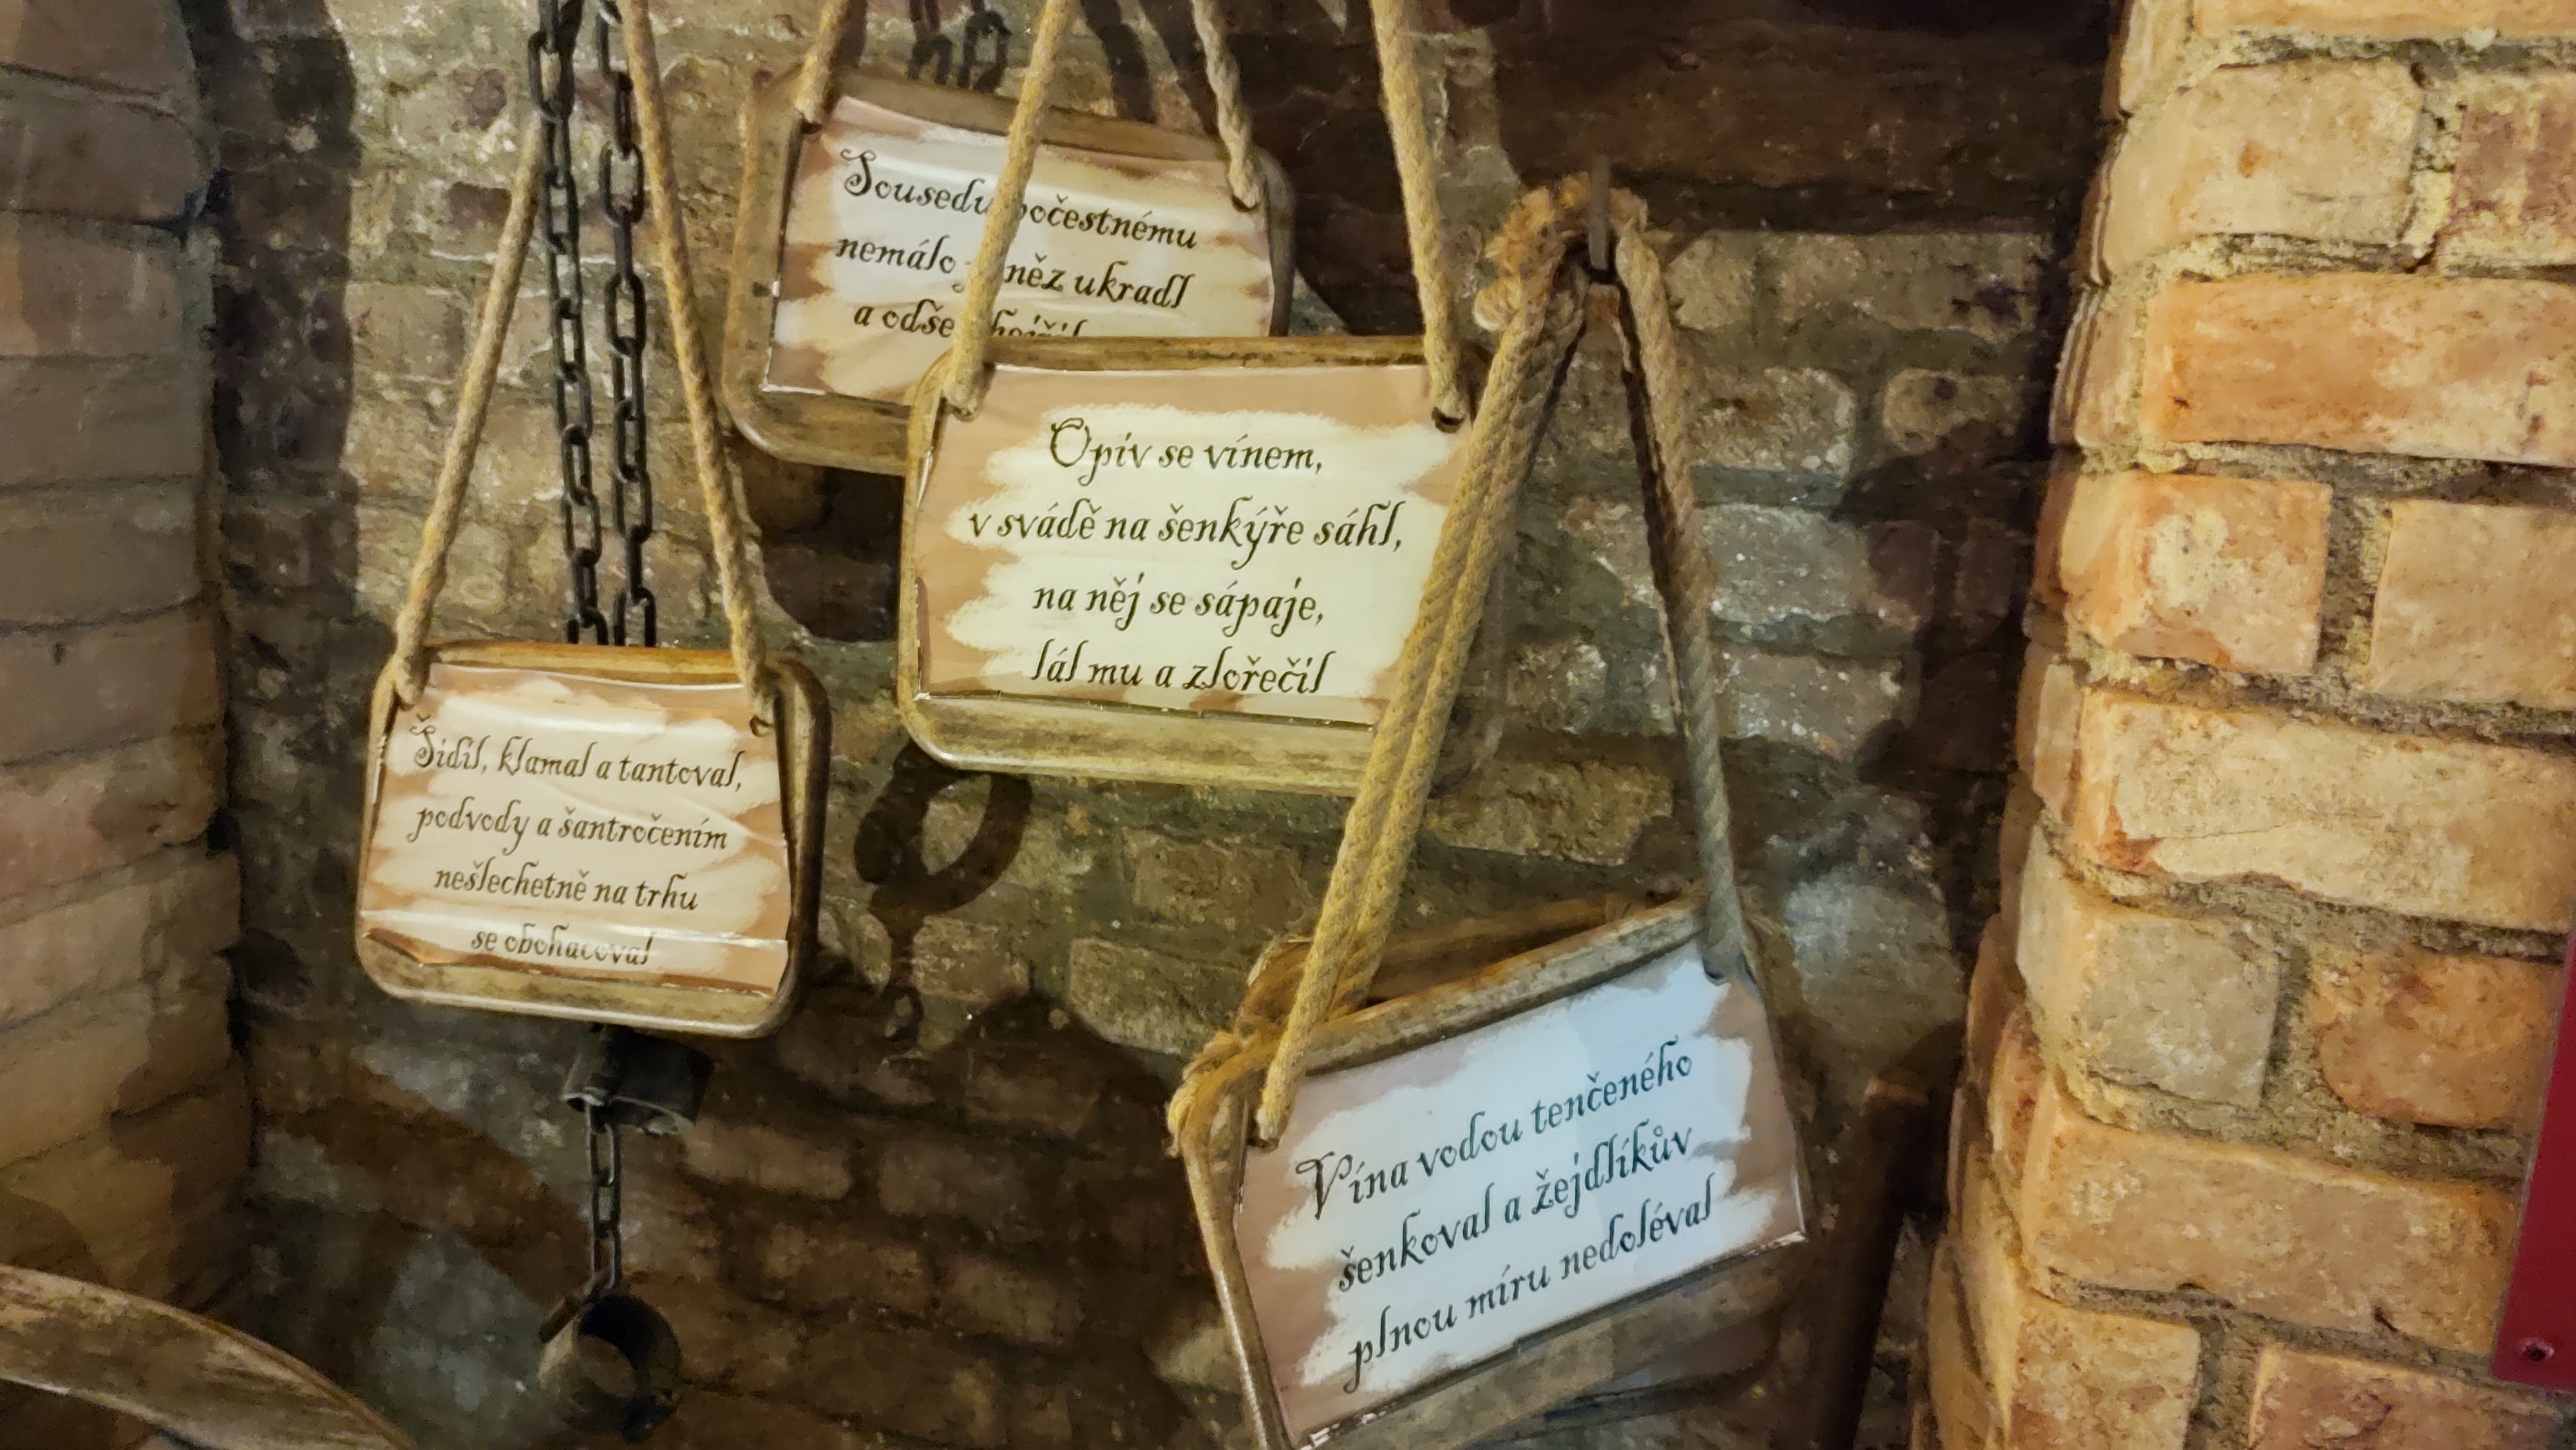 Sousedu počestnému
nemálo peněz ukradl
a odše
Opiv se vínem,
v svádě na šenkýře sáhl,
na něj se sápaje,
lál mu a zlořečil
Šidil, klamal a tantoval,
podvody a šantročením
nešlechetně na trhu
se obohacoval
Vína vodou tenčeného
šenkoval a žejdlíkův
plnou míru nedoléval